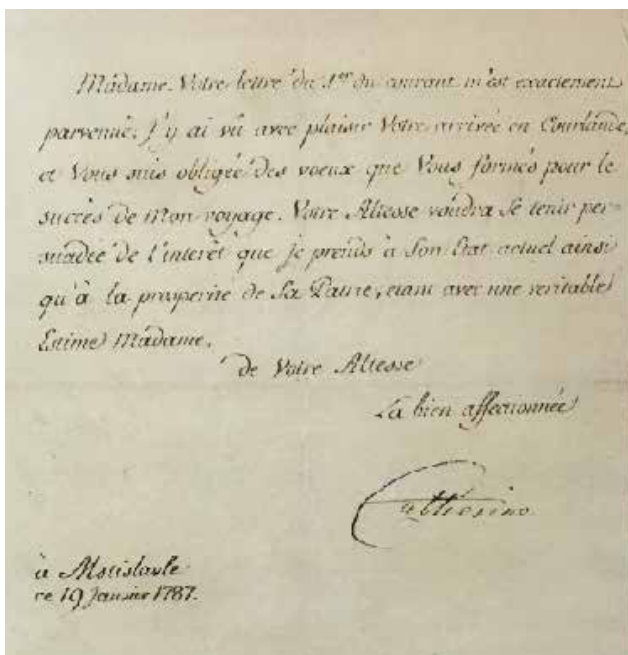 Mādame. Votre lettre du 1er du courant m'est exactement
parvenuë. J'y ai vû avec plaisir Votre arrivée en Courlande,
et Vous suis obligée des voeux que Vous formés pour le
succès de Mon voyage. Votre Altesse voudra Se tenir per-
suadée de l'interêt que je prends à Son Etat actuel ainsi
qu'à la prosperité de Sa Patrie, etant avec une veritable
Estime Mādame.
de Votre Altesse
La bien affectionnée
Catherine
à Mstislavle
ce 19 Janvier 1787.